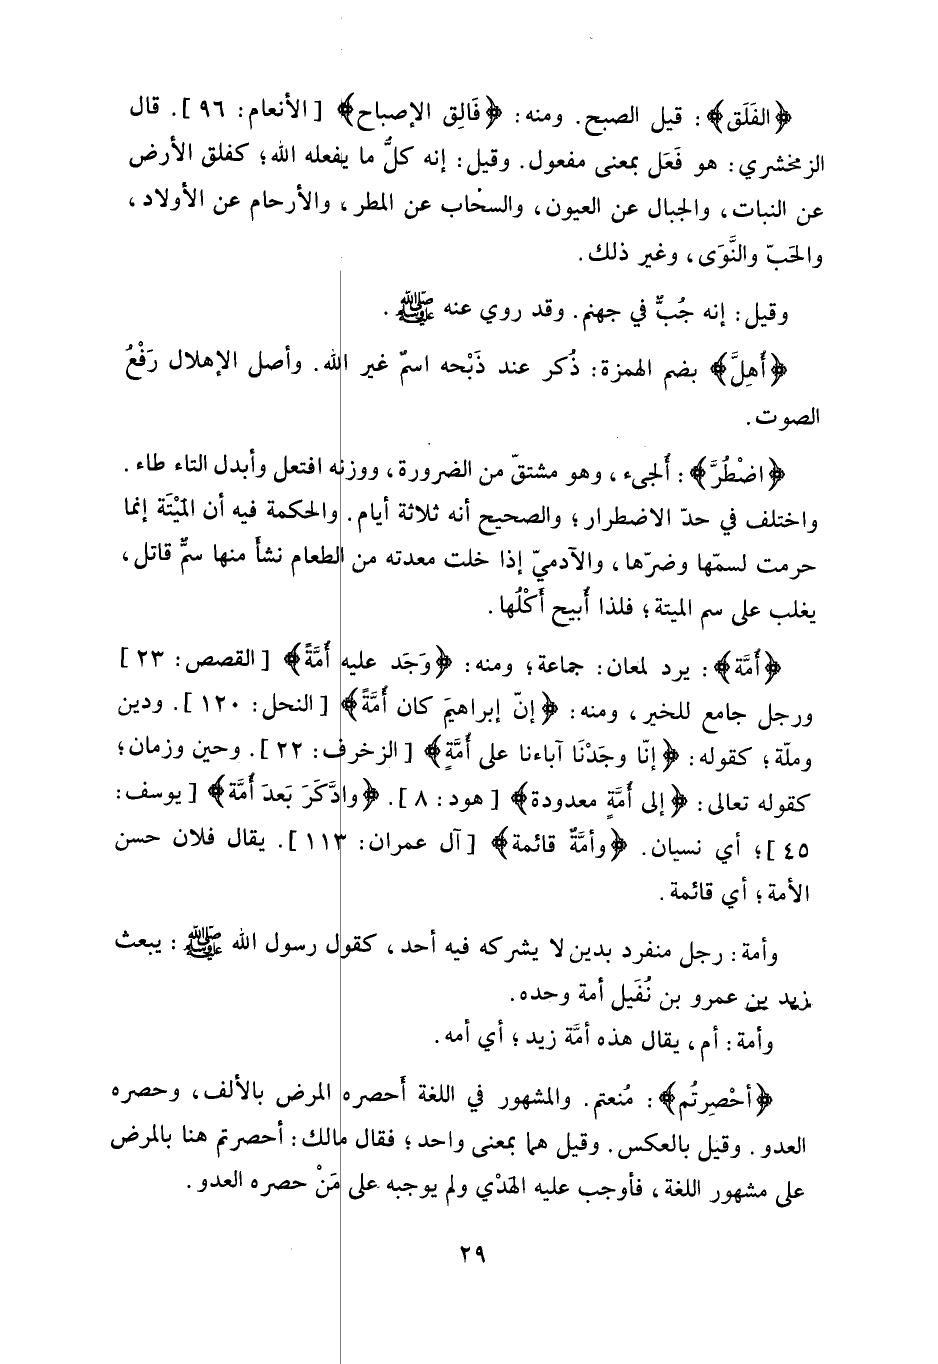 ﴿الفَلَق﴾: قيل الصبح. ومنه: ﴿فَالِق الإصباح﴾ [الأنعام: ٩٦]. قال
الزمخشري: هو فَعَل بمعنى مفعول. وقيل: إنه كلُّ ما يفعله الله؛ كفلق الأرض
عن النبات، والجبال عن العيون، والسحاب عن المطر، والأرحام عن الأولاد،
والحَبّ والنَّوَى، وغير ذلك.
وقيل: إنه جُبٌّ في جهنم. وقد روي عنه ﷺ.
﴿أُهِلَّ﴾ بضم الهمزة: ذُكر عند ذَبْحه اسمٌ غير الله. وأصل الإهلال رَفْعُ
الصوت.
﴿اضْطُرَّ﴾: أُلجىء، وهو مشتقّ من الضرورة، ووزنه افتعل وأبدل التاء طاء.
واختلف في حدّ الاضطرار؛ والصحيح أنه ثلاثة أيام. والحكمة فيه أن المَيْتَة إنما
حرمت لسمّها وضرّها، والآدميّ إذا خلت معدته من الطعام نشأ منها سمٌّ قاتل،
يغلب على سم الميتة؛ فلذا أُبيح أَكْلُها.
﴿أُمَّة﴾: يرد لمعان: جماعة؛ ومنه: ﴿وَجَد عليه أُمَّةً﴾ [القصص: ٢٣]
ورجل جامع للخير، ومنه: ﴿إنّ إبراهيمَ كان أُمَّةً﴾ [النحل: ١٢٠]. ودين
وملّة؛ كقوله: ﴿إنّا وجَدْنَا آباءنا على أُمَّةٍ﴾ [الزخرف: ٢٢]. وحين وزمان؛
كقوله تعالى: ﴿إلى أُمَّةٍ معدودة﴾ [هود: ٨]. ﴿وادَّكَرَ بَعدَ أُمَّة﴾ [يوسف:
٤٥]؛ أي نسيان. ﴿وأمَّةٌ قائمة﴾ [آل عمران: ١١٣]. يقال فلان حسن
الأمة؛ أي قائمة.
وأمة: رجل منفرد بدين لا يشركه فيه أحد، كقول رسول الله ﷺ: يبعث
زيد بن عمرو بن نُفَيل أمة وحده.
وأمة: أم، يقال هذه أمَّة زيد؛ أي أمه.
﴿أحْصِرتُم﴾: مُنعتم. والمشهور في اللغة أَحصره المرض بالألف، وحصره
العدو. وقيل بالعكس. وقيل هما بمعنى واحد؛ فقال مالك: أحصرتم هنا بالمرض
على مشهور اللغة، فأوجب عليه الهَدْي ولم يوجبه على مَنْ حصره العدو.
٢٩